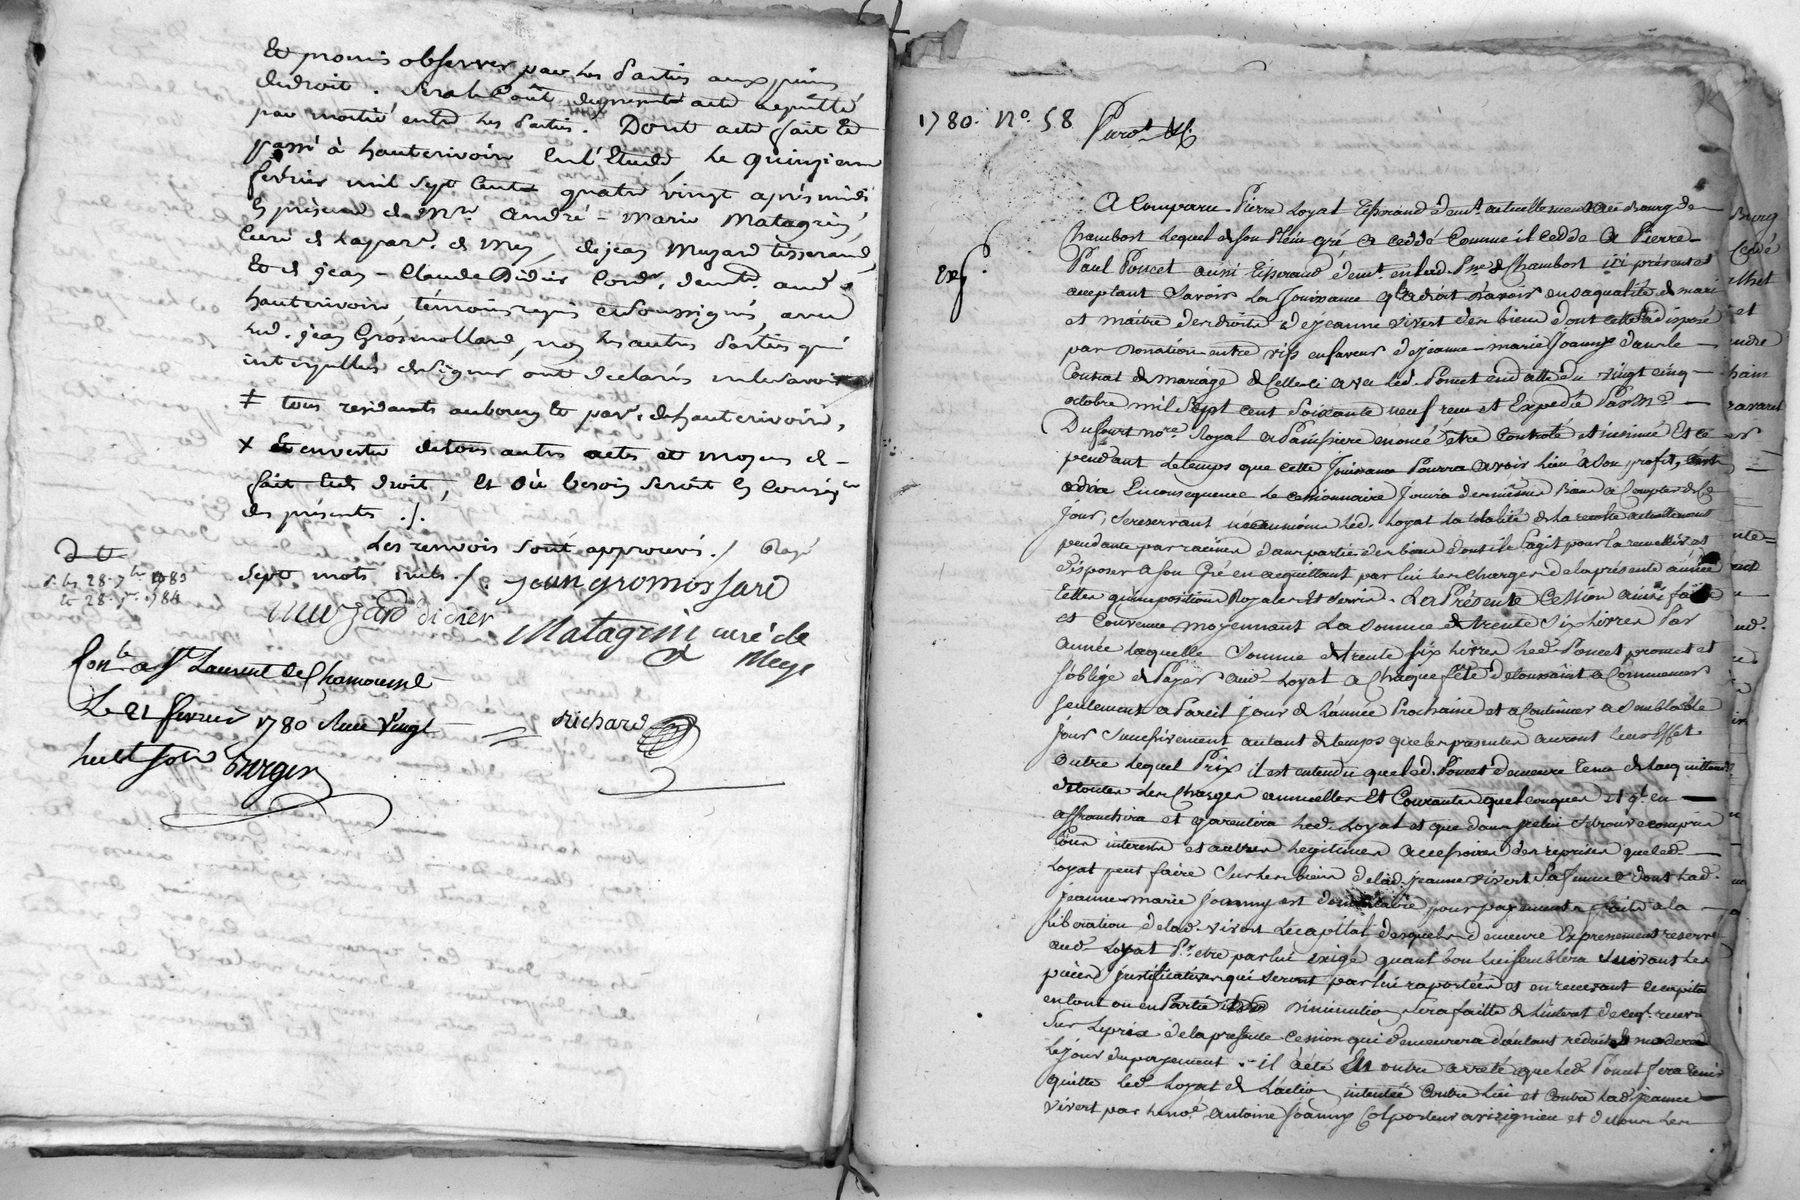 Et promis observer par les Parties aux peines
de droit. Sera le Coût du present acte acquitté
par moitié entre les Parties. Dont acte fait et
passé à hauterivoire en l'Etude le quinzieme
fevrier mil sept cent quatre vingt après midi
En présence de Mre André-Marie Matagrin,
Curé de la par. de Meys, de jean Muzard tisserand,
Et de jean-Claude Didier Cord. demt. aud.
hauterivoire, témoins requis et soussignés, avec
led. jean Gros, non les autres Parties qui
interpellés de signer ont declarés ne le savoir
‡ tous residants au bourg et par. de hauterivoire,
x Et en vertu de tous autres actes et moyens de
fait et de droit, et où besoin seroit En
des présentes ./.
Les renvois sont approuvés ./. Rayé
Sept mots nuls ./. jean gromossard
muzard didier
Matagrin curé de
Meys
d t
28 7bre 1783
28 1784
Conlé a St Laurent de Chamousset
Le 21 fevrier 1780 Reçu Vingt
huit sols Berger
Richard
1780. No. 58
A Comparu Pierre Loyat Tisserand demt. actuellement au Bourg de
Chambost lequel de son plein gré a ceddé comme il cedde a Pierre
Paul Poncet aussi Tisserand demt. en lad. Psse de Chambost ici présent et
acceptant Savoir La Jouissance qla droit d'avoir en sa qualité de mari
et maitre des droits de jeanne vivert des biens dont cette a disposé
par donation entre vifs en faveur de jeanne-marie Joanny dans le
Contrat de mariage de Celle-ci avec led. Poncet en datte du vingt cinq
octobre mil Sept cent Soixante neuf reçu et Expedié Par Me
Dufourt nore. Royal a Panissiere enoncé être Controlé et insinué Et ce
pendant le temps que cette Jouissance Pourra avoir lieu a son profit,
En consequence le cessionnaire Jouira des mêmes Biens a Compter de ce
Jour, se reservant néanmoins led. Loyat la totalité de la recolte actuellement
pendante par racines dans partie des biens dont il s'agit pour la recueillir et
disposer a son Gré en acquittant par lui les Charges de la présente année
telles qu'impositions Royales et servis. La Présente Cession ainsi faitte
et Convenue moyennant La somme de trente Six livres Par
année laquelle Somme de trente six livres led. Poncet promet et
s'oblige de Payer aud. Loyat a Chaque fête de toussaint a Commencer
seulement a Pareil jour de l'année Prochaine et a Continuer a semblable
Jour Successivement autant de temps que les presentes auront leur effet.
Outre lequel Prix il est entendu que led. Poncet demeure tenu de l'acquittement
de toutes les Charges annuelles et Courantes quelconques et ql en
affranchira et garentira led. Loyat et que dans se trouve compris
tous interets et autres legitimes accessoires des reprises que led.
Loyat peut faire Sur les biens de lad. jeanne vivert Sa femme dont lad.
jeanne-marie Joanny est donnataire, pour payements faits a la
liberation de lad. vivert Le capital desquels demeure Expressement reservé
aud. Loyat Pr. etre par lui exigé quant bon lui semblera suivant les
pièces justificatives qui seront par lui raportées et en recevant le capital
en tout ou en Partie diminution sera faitte de l'interet de ce ql. recevra
Sur le prix de la presente Cession qui demeurera d'autant réduit
le jour du payement. - il a été En outre arreté que led. Poncet fera tenir
quitte led. Loyat de L'action intentée Contre lui et Contre lad. jeanne
vivert par hone. Antoine Joanny Colporteur a et de tous les